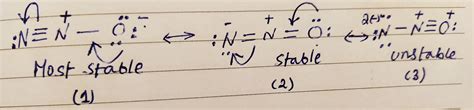 :N≡N⁺–Ö:⁻ ↔ :N̈⁻=N⁺=Ö: ↔ 2(-):N̈–N⁺≡O⁺:
Most stable stable unstable
(1) (2) (3)